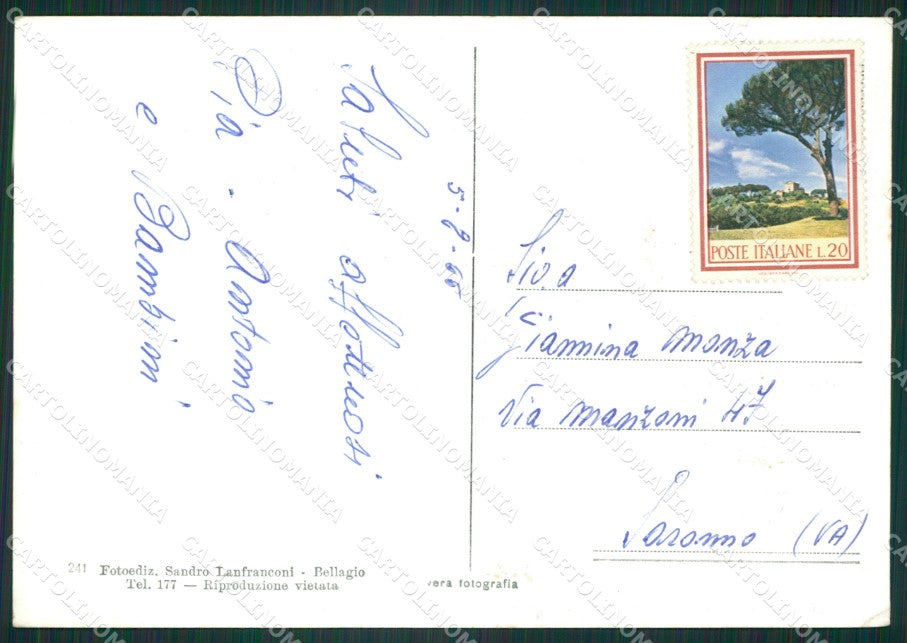 5-8-66
Saluti affettuosi
Pia - Antonio
e Bambini
POSTE ITALIANE L.20
Sig.a
Giannina Monza
Via Manzoni 47
Saronno (VA)
241 Fotoediz. Sandro Lanfranconi - Bellagio
Tel. 177 — Riproduzione vietata
vera fotografia
CARTOLINOMANIA